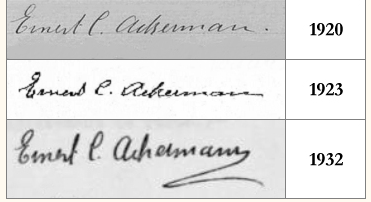 Ernest C. Ackerman. 1920
Ernest C. Ackerman 1923
Ernest C. Ackermann 1932